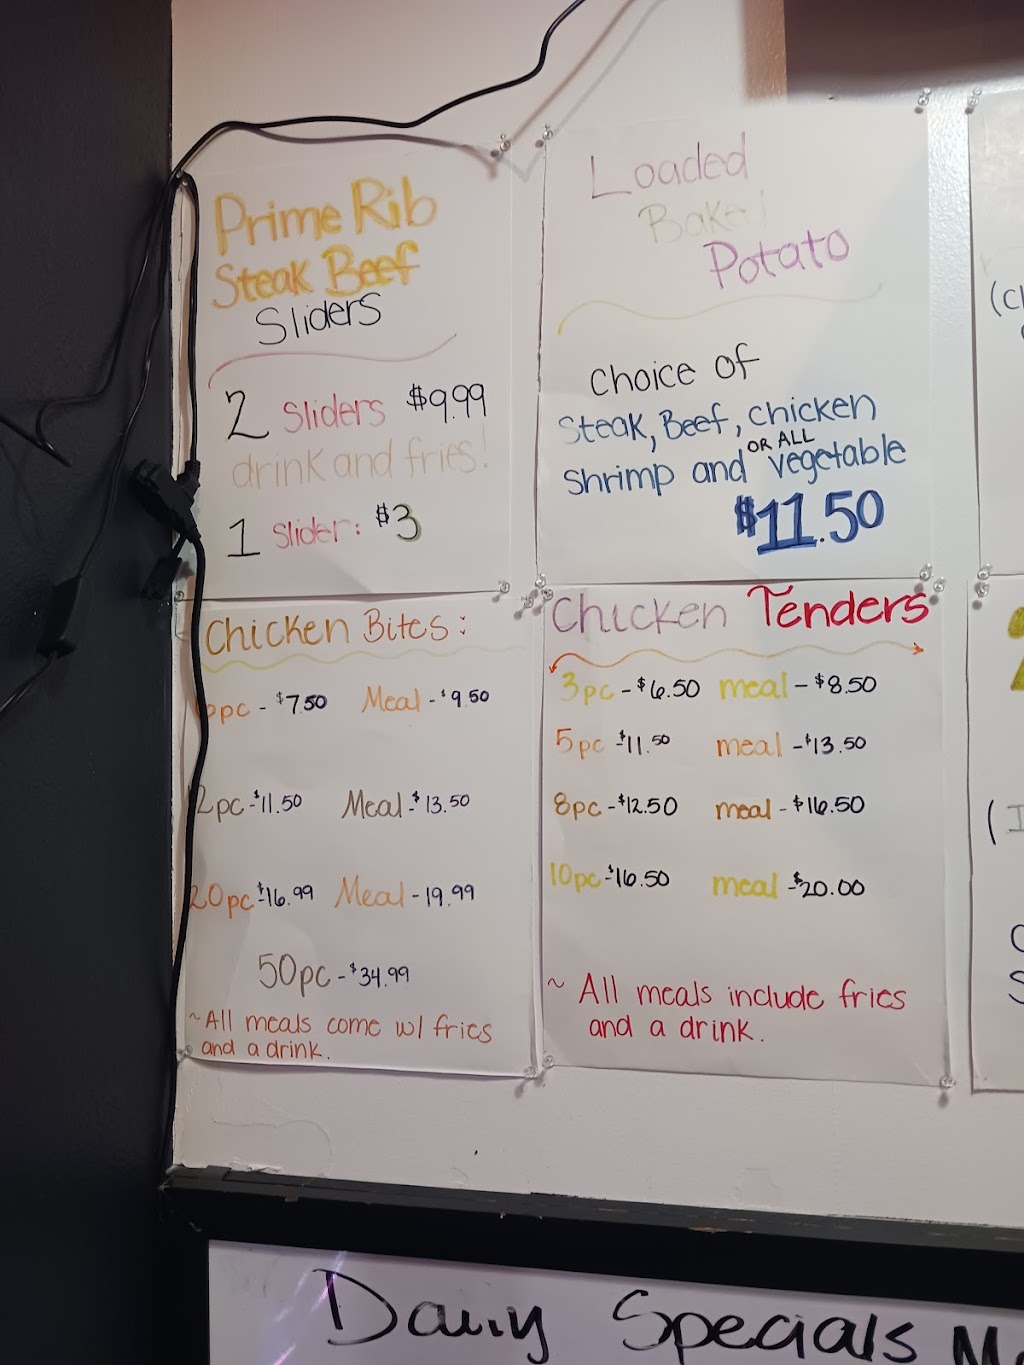 Prime Rib
Steak Beef
Sliders
2 Sliders $9.99
drink and fries!
1 Slider: $3
Loaded
Baked
Potato
Choice of
Steak, Beef, Chicken
OR ALL
Shrimp and vegetable
$11.50
Chicken Bites:
pc - $7.50 Meal - $9.50
2pc - $11.50 Meal - $13.50
20pc - $16.99 Meal - 19.99
50pc - $34.99
~ All meals come w/ fries
and a drink.
Chicken Tenders
3pc - $6.50 meal - $8.50
5pc - $11.50 meal - $13.50
8pc - $12.50 meal - $16.50
10pc - $16.50 meal - $20.00
~ All meals include fries
and a drink.
Daily Specials